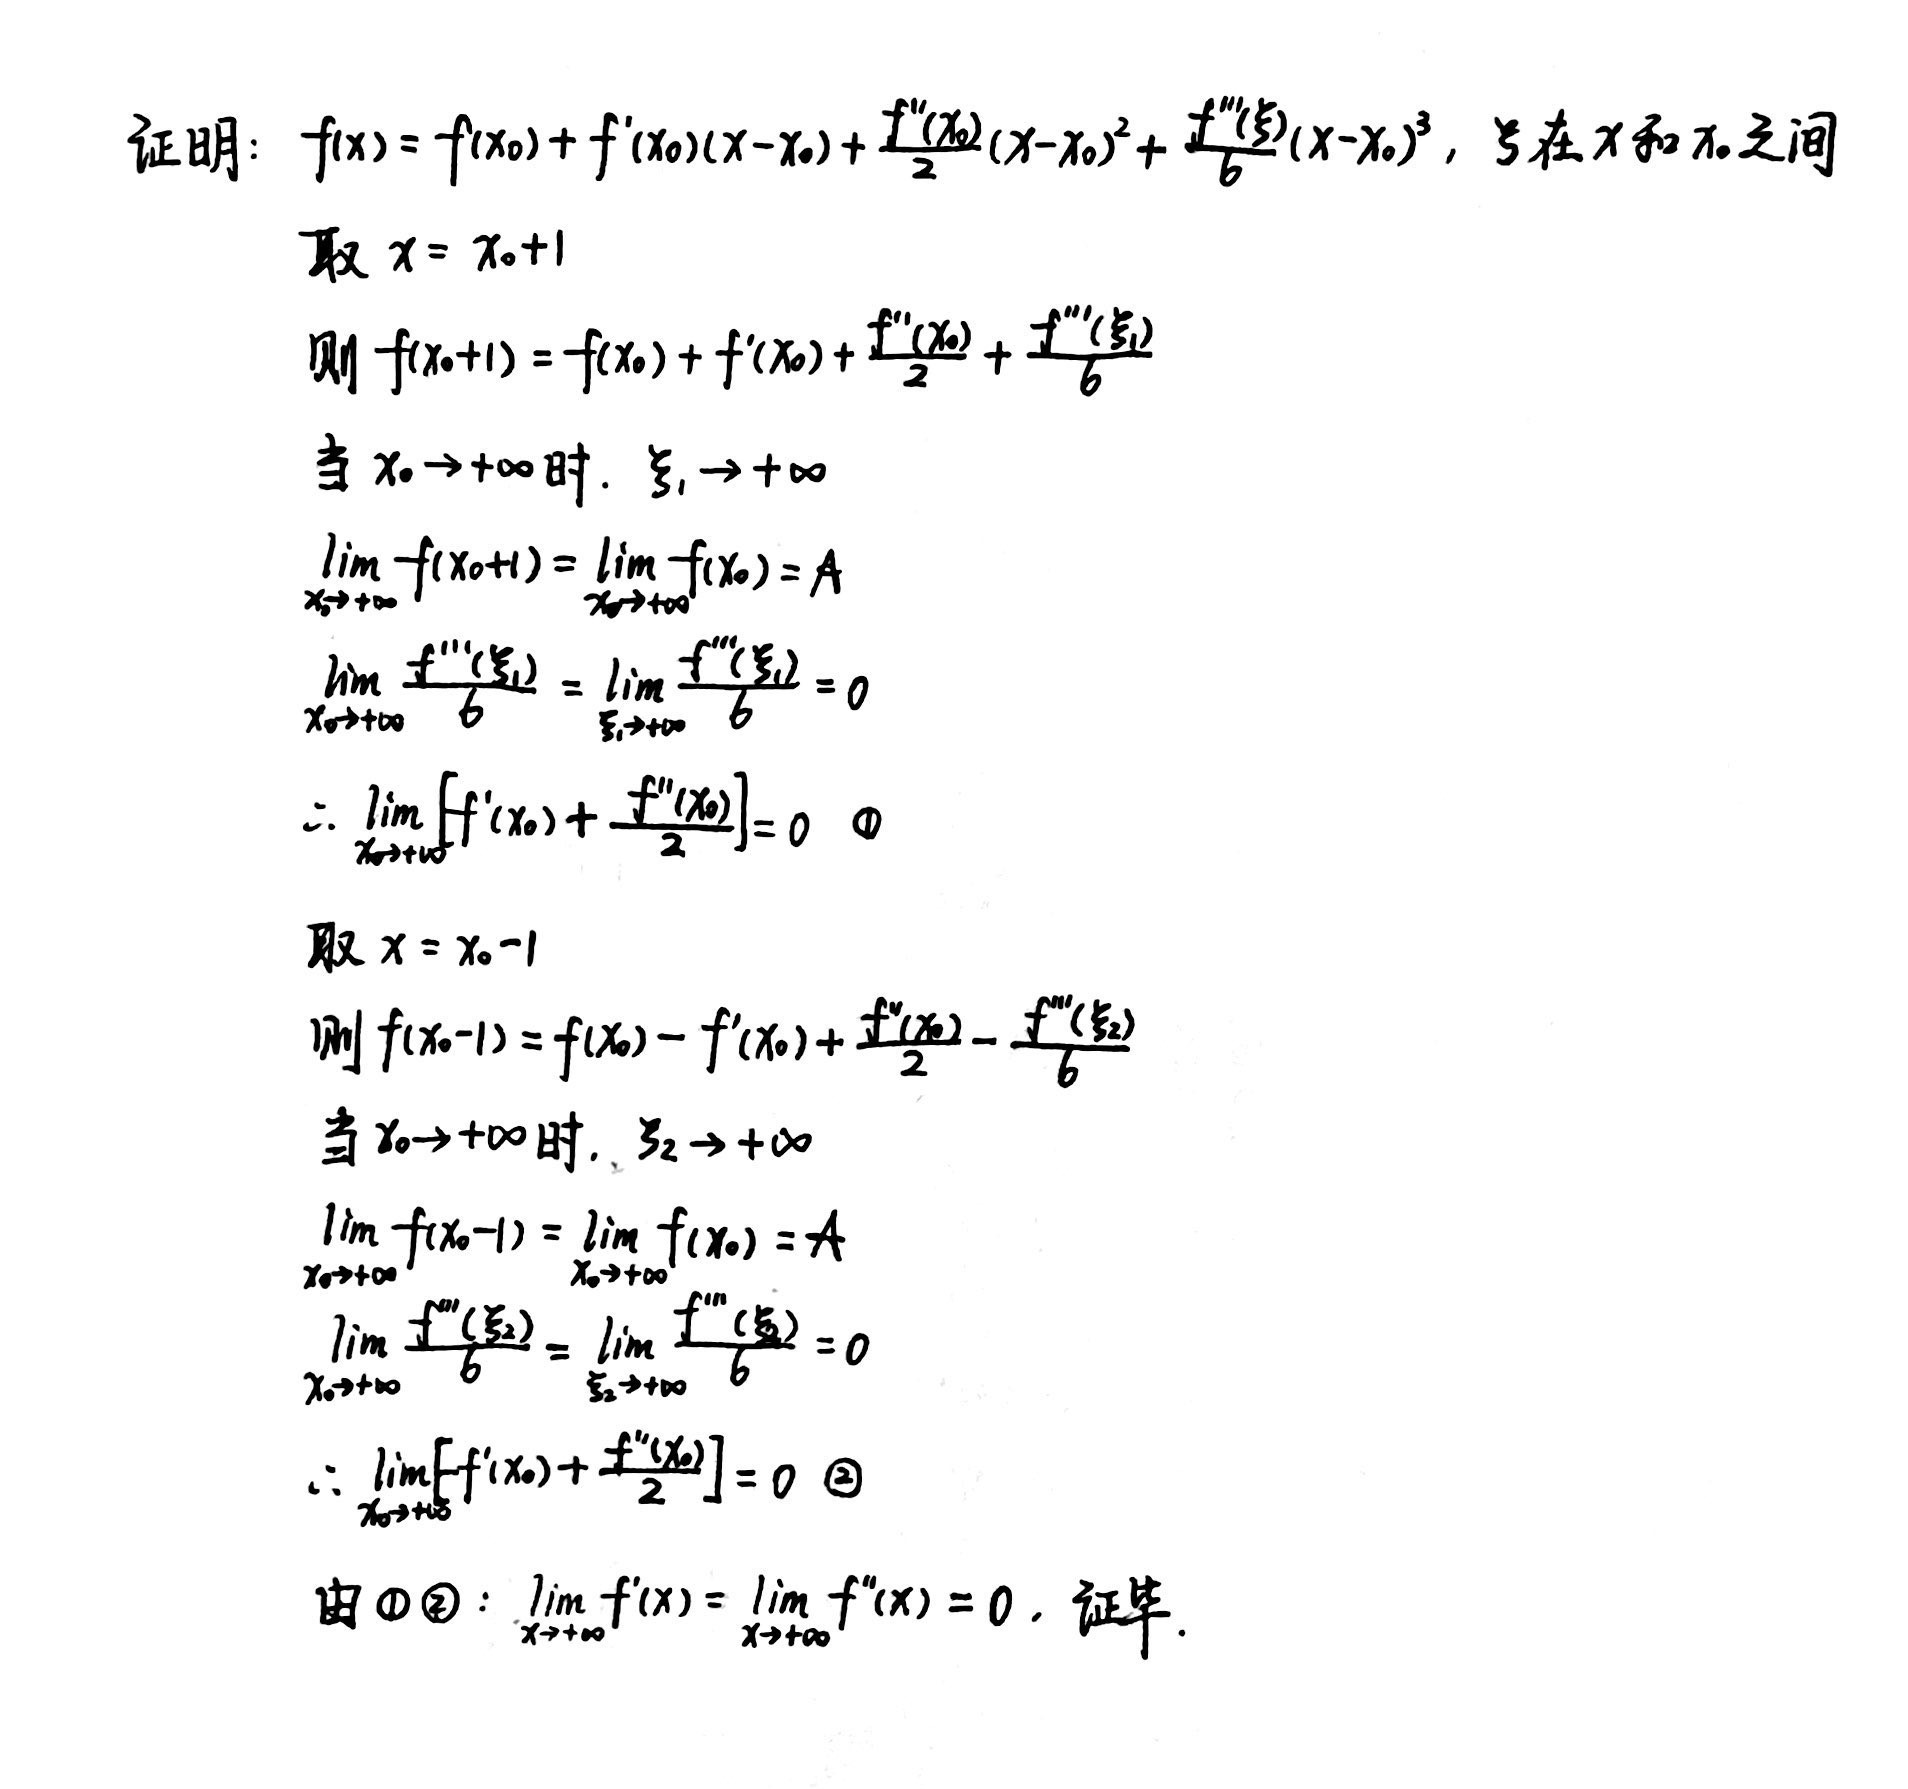 证明: f(x) = f(x₀) + f'(x₀)(x-x₀) + f''(x₀)/2 (x-x₀)² + f'''(ξ)/6 (x-x₀)³, ξ在x和x₀之间
取 x = x₀+1
则 f(x₀+1) = f(x₀) + f'(x₀) + f''(x₀)/2 + f'''(ξ₁)/6
当 x₀→+∞时. ξ₁→+∞
lim_{x₀→+∞} f(x₀+1) = lim_{x₀→+∞} f(x₀) = A
lim_{x₀→+∞} f'''(ξ₁)/6 = lim_{ξ₁→+∞} f'''(ξ₁)/6 = 0
∴ lim_{x₀→+∞} [f'(x₀) + f''(x₀)/2] = 0 ①
取 x = x₀-1
则 f(x₀-1) = f(x₀) - f'(x₀) + f''(x₀)/2 - f'''(ξ₂)/6
当 x₀→+∞时. ξ₂→+∞
lim_{x₀→+∞} f(x₀-1) = lim_{x₀→+∞} f(x₀) = A
lim_{x₀→+∞} f'''(ξ₂)/6 = lim_{ξ₂→+∞} f'''(ξ₂)/6 = 0
∴ lim_{x₀→+∞} [-f'(x₀) + f''(x₀)/2] = 0 ②
由①②: lim_{x→+∞} f'(x) = lim_{x→+∞} f''(x) = 0. 证毕.